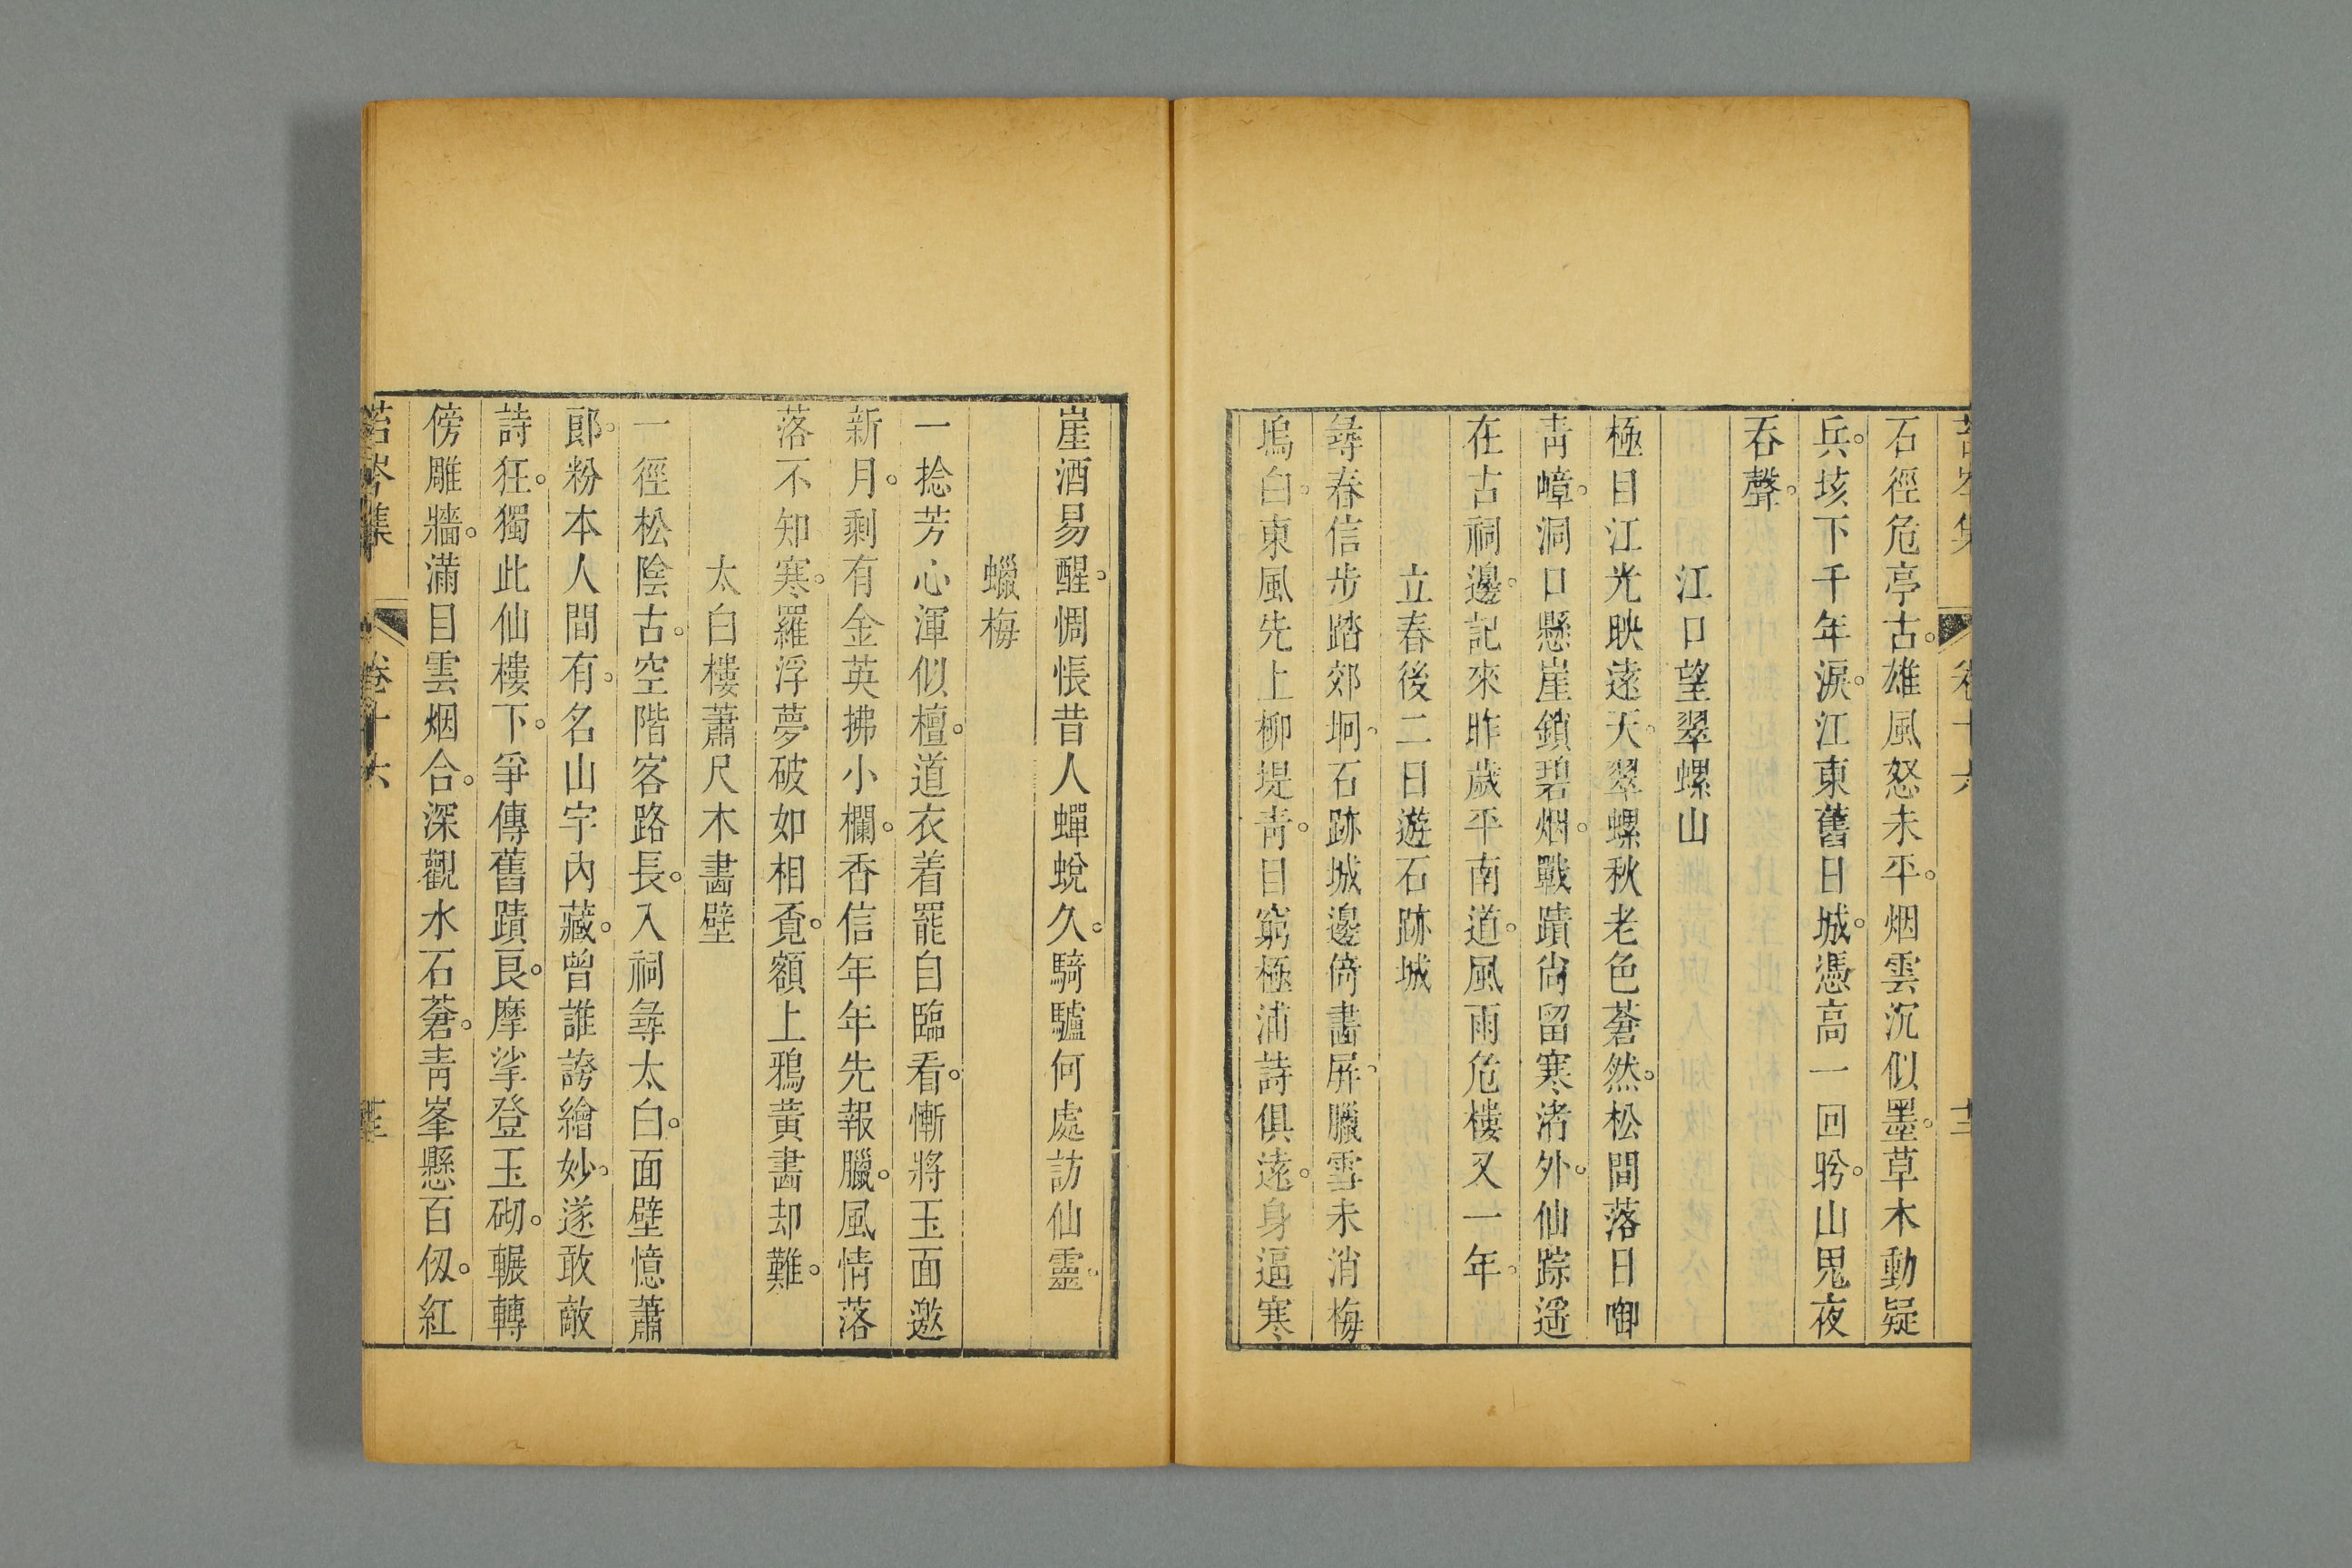 苕岑集 卷十六
石徑危亭古。雄風怒未平。烟雲沉似墨。草木動疑
兵。垓下千年淚。江東舊日城。憑高一回盻。山鬼夜
吞聲。
江口望翠螺山
極目江光映遠天。翠螺秋老色蒼然。松間落日啣
靑嶂。洞口懸崖鎖碧烟。戰蹟尙留寒渚外。仙踪遥
在古祠邊。記來昨歲平南道。風雨危樓又一年。
立春後二日遊石跡城
尋春信步踏郊坰。石跡城邊倚畵屏。臘雪未消梅
塢白。東風先上柳堤靑。目窮極浦詩俱遠。身逼寒
崖酒易醒。惆悵昔人蟬蛻久。騎驢何處訪仙靈。
蠟梅
一捻芳心渾似檀。道衣着罷自臨看。慚將玉面邀
新月。剩有金英拂小欄。香信年年先報臘。風情落
落不知寒。羅浮夢破如相覔。額上鴉黃畵却難。
太白樓蕭尺木畵壁
一徑松陰古。空階客路長。入祠尋太白。面壁憶蕭
郞。粉本人間有。名山宇內藏。曾誰誇繪妙。遂敢敵
詩狂。獨此仙樓下。爭傳舊蹟良。摩挲登玉砌。輾轉
傍雕牆。滿目雲烟合。深觀水石蒼。靑峯懸百仭。紅
苕岑集 卷十六